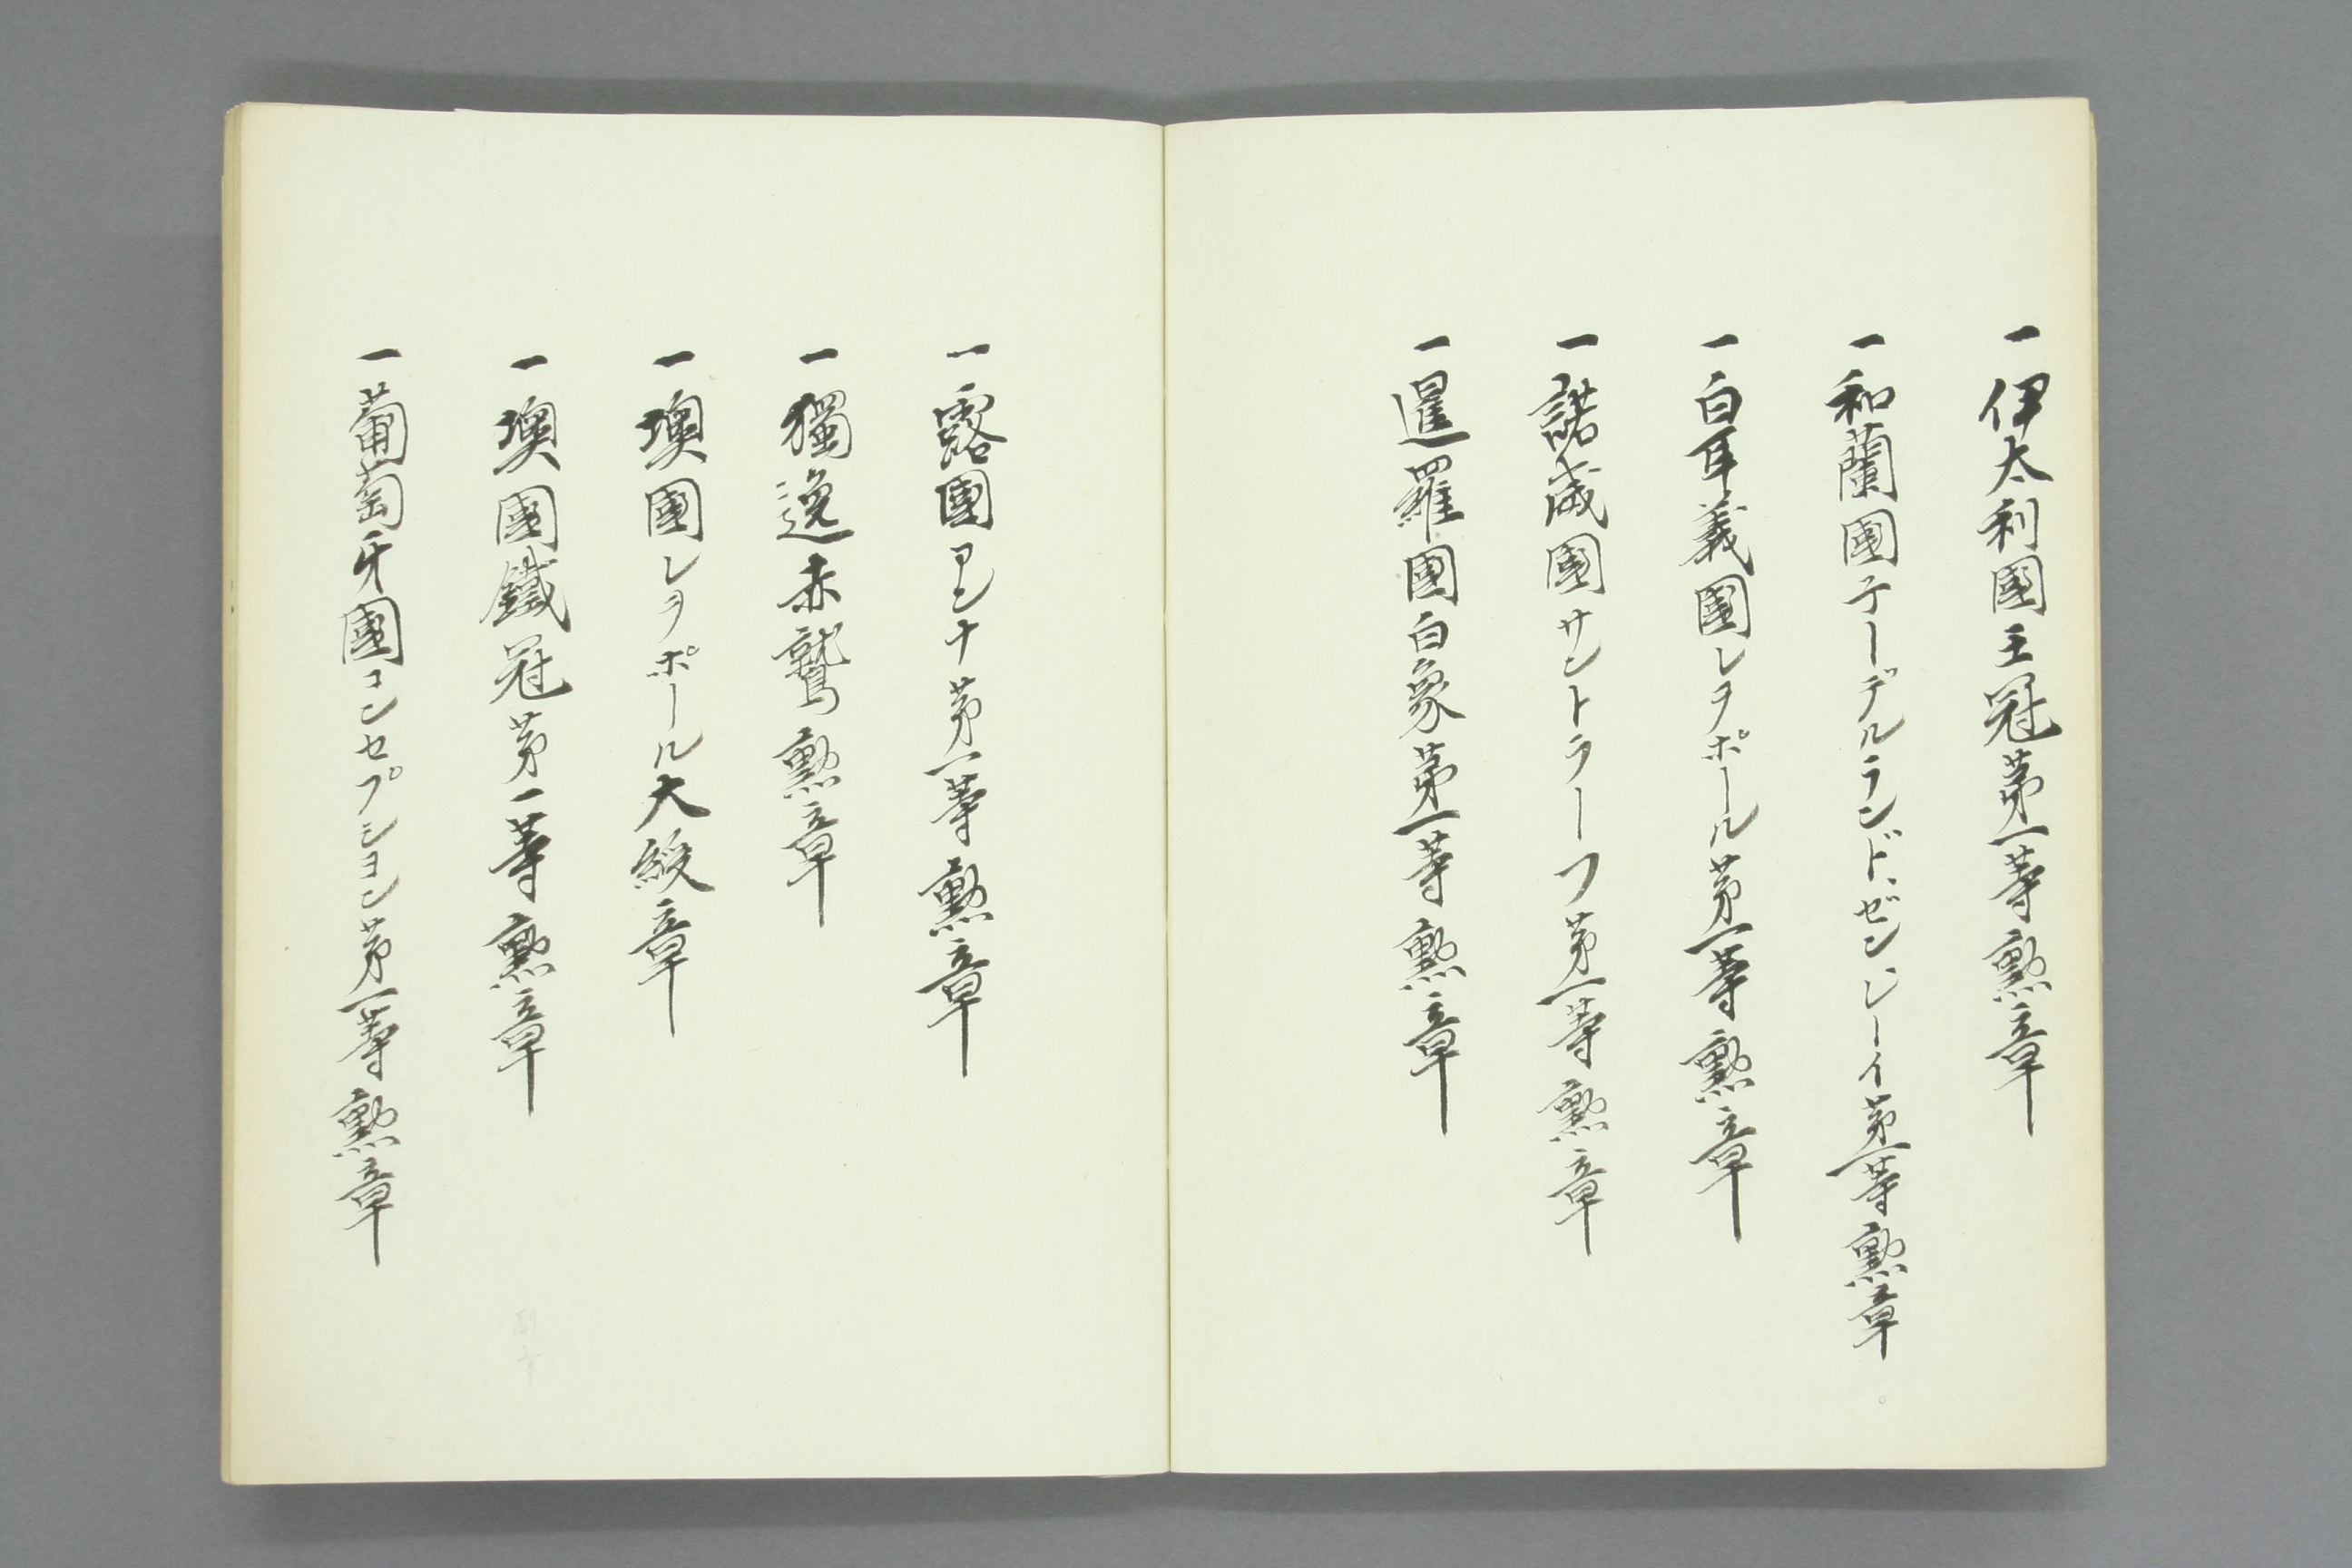 一伊太利國王冠第一等勲章
一和蘭國子ーデルランドゼンレーイ第一等勲章
一白耳義國レヲポール第一等勲章
一諾威國サントラーフ第一等勲章
一暹羅國白象第一等勲章
一露國アンナ第一等勲章
一獨逸赤鷲勲章
一墺國レヲポール大綬章
一墺國鐵冠第一等勲章
一葡萄牙國コンセプシヨン第一等勲章